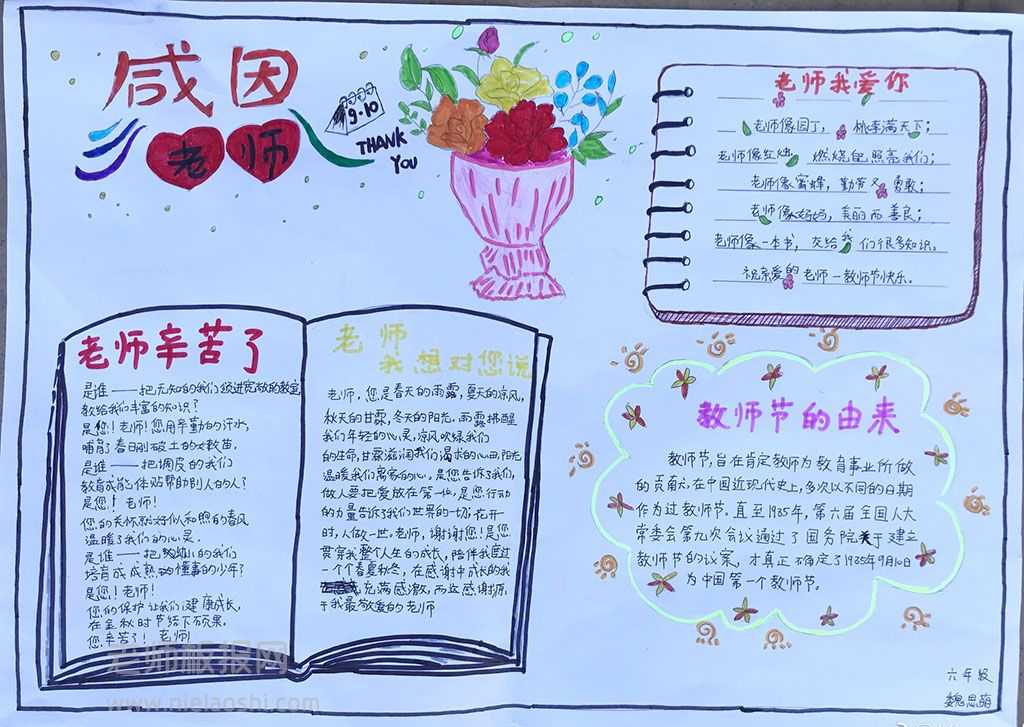 感因
老师
9·10
THANK
YOU
老师我爱你
老师像园丁，桃李满天下；
老师像红烛，燃烧自己照亮我们；
老师像蜜蜂，勤劳又勇敢；
老师像妈妈，美丽而善良；
老师像一本书，交给我们很多知识。
祝亲爱的老师一教师节快乐。
老师辛苦了
是谁——把无知的我们领进宽敞的教室
教给我们丰富的知识？
是您！老师！您用辛勤的汗水
哺育了春日刚破土的嫩苗。
是谁——把调皮的我们
教育成能体贴帮助别人的人？
是您！老师！
您的关怀就好似和煦的春风
温暖了我们的心灵。
是谁——把幼小的我们
培育成成熟的懂事的少年？
是您！老师！
您的保护让我们健康成长，
在金秋时节结下硕果。
您辛苦了！老师！
老师
我想对您说
老师，您是春天的雨露，夏天的凉风，
秋天的甘霖，冬天的阳光。雨露拂醒
我们年轻的心灵，凉风吹绿我们
的生命，甘霖滋润我们渴求的心田，阳光
温暖我们离家的心。是您告诉了我们，
做人要把爱放在第一位，是您行动
的力量告诉了我们世界的一切；花开一
时，人做一世。老师，谢谢您！是您
贯穿我整个人生的成长，陪伴我度过
一个个春夏秋冬，在感谢中成长的我
充满感激，而这感谢源
于我最敬爱的老师
教师节的由来
教师节，旨在肯定教师为教育事业所做
的贡献。在中国近现代史上，多次以不同的日期
作为过教师节。直至1985年，第六届全国人大
常委会第九次会议通过了国务院关于建立
教师节的议案，才真正确定了1985年9月10日
为中国第一个教师节。
六年级
魏思萌
老师板报网
www.nielaoshi.com